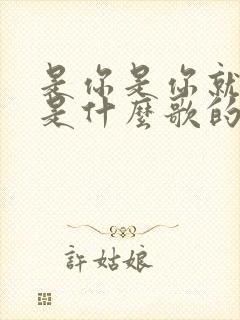 是你是你就
是什麼歌的
許姑娘